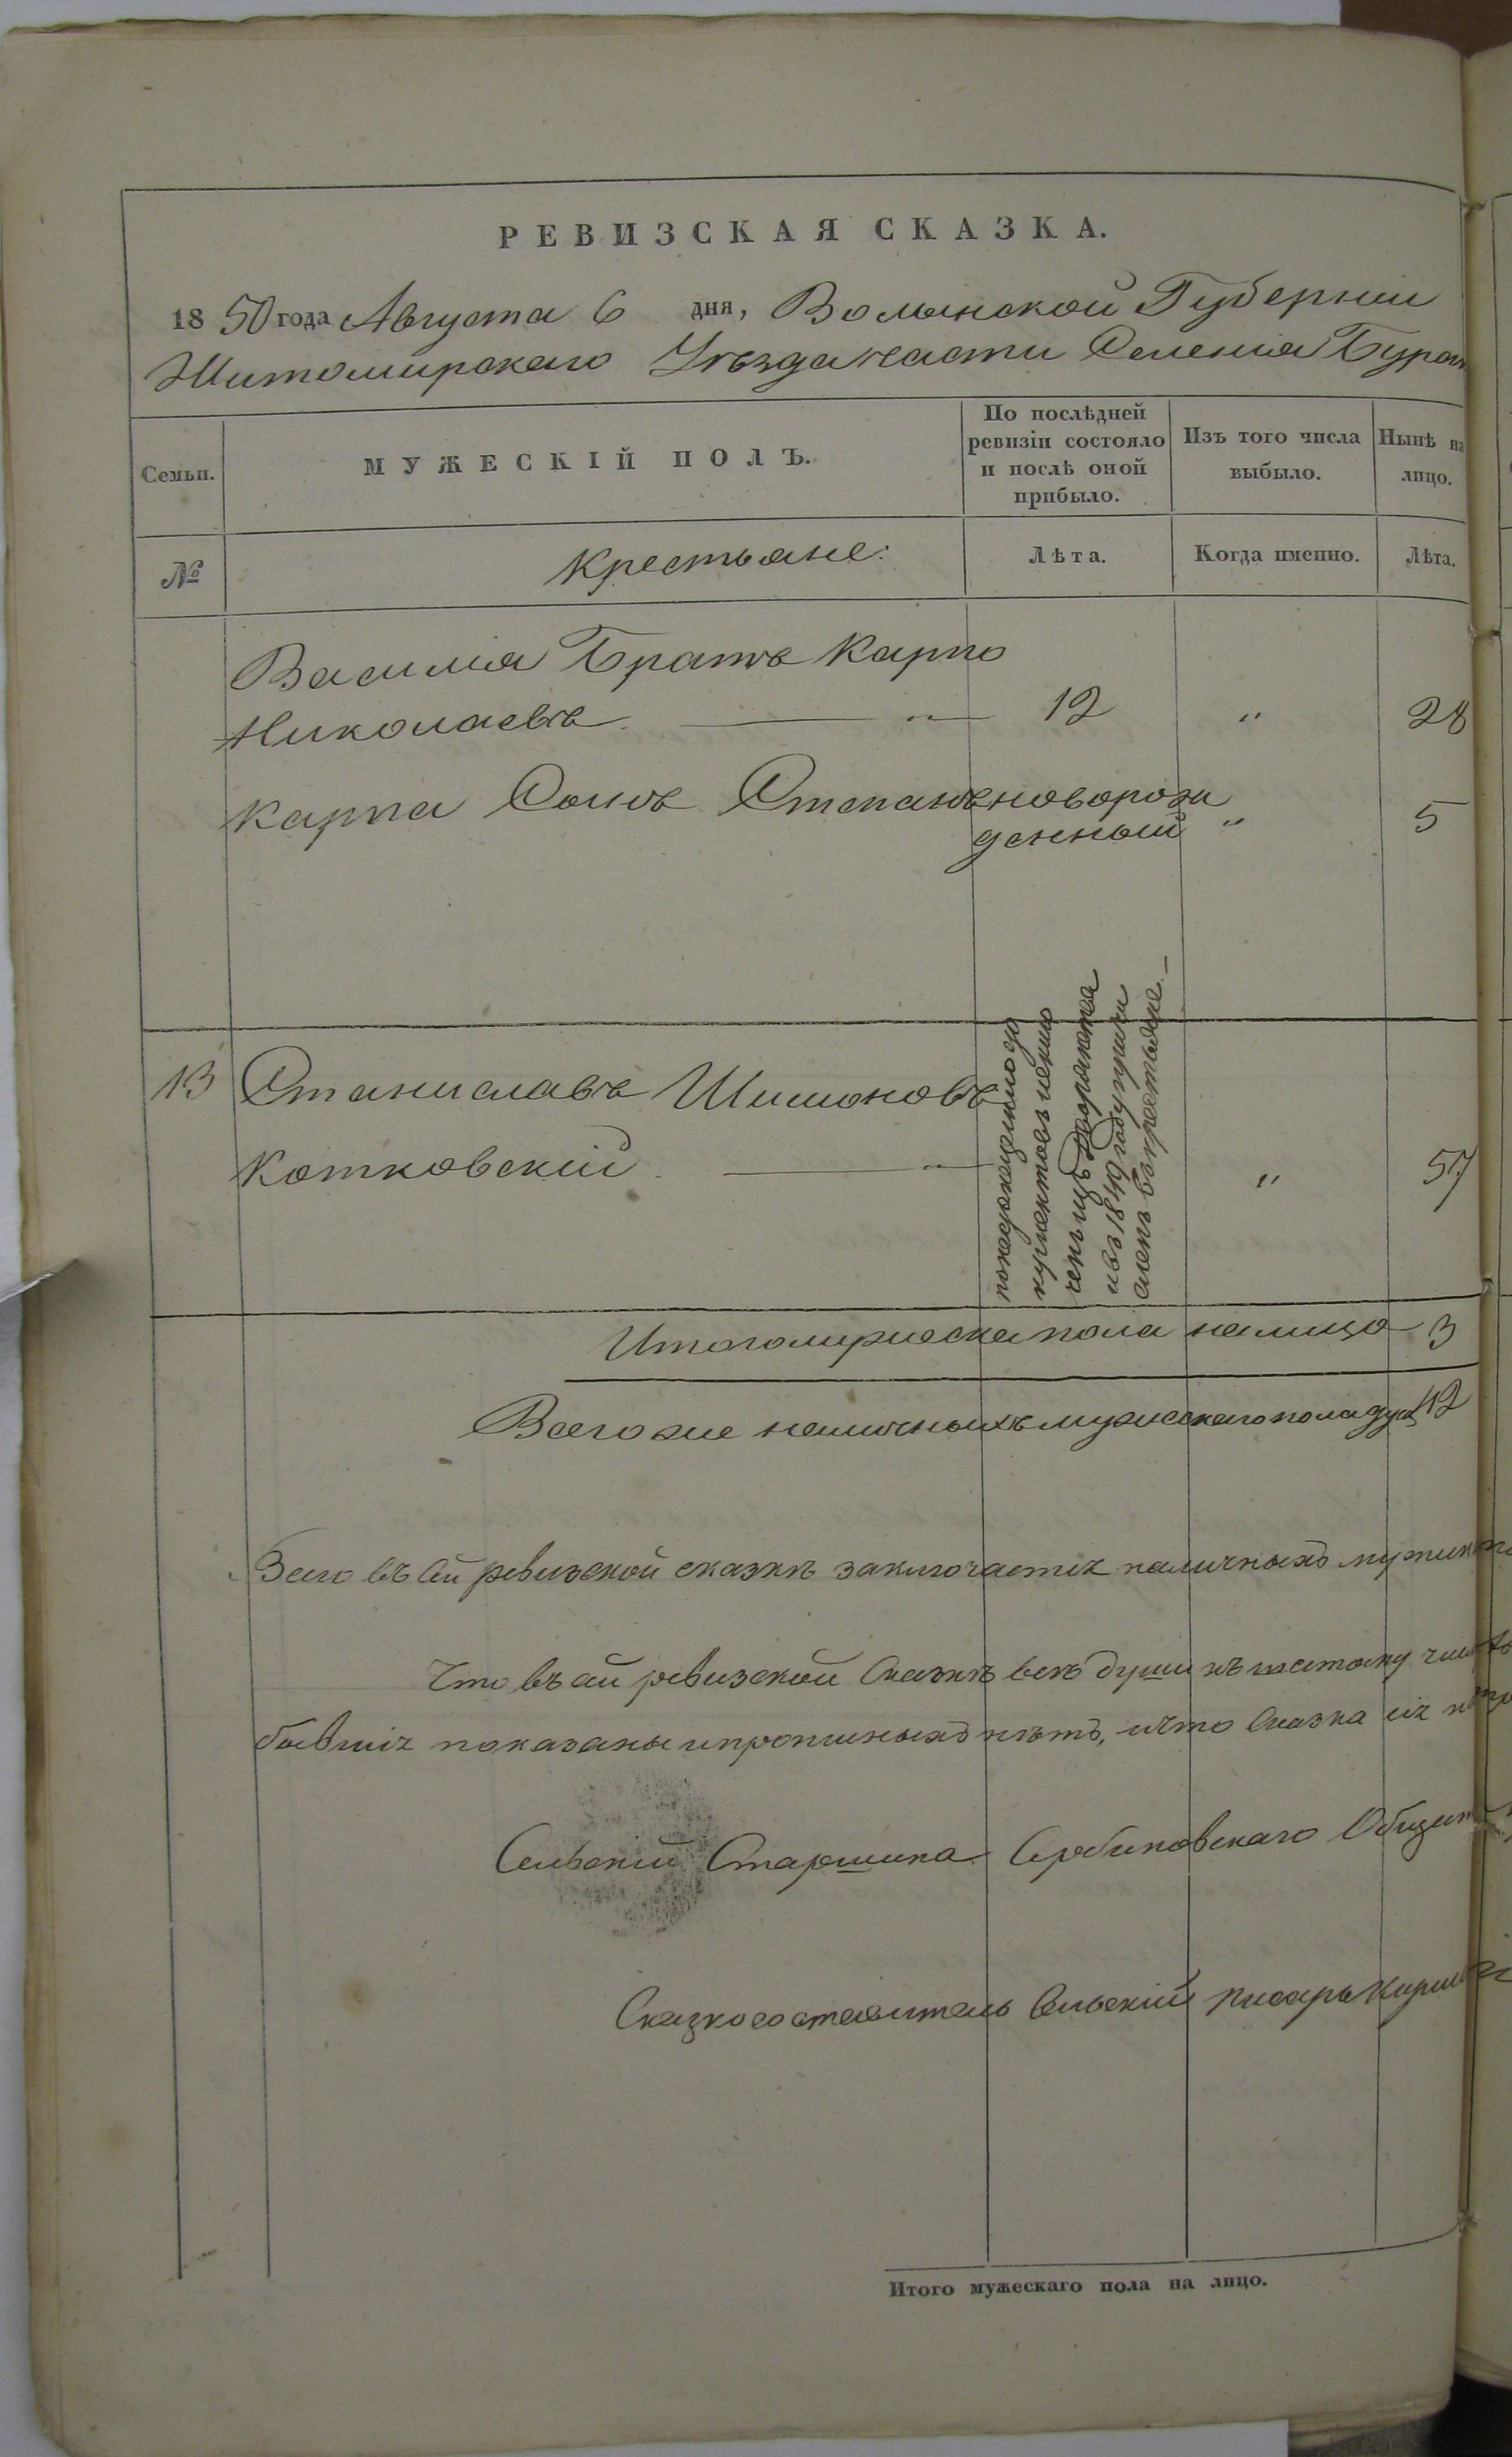 РЕВИЗСКАЯ СКАЗКА.
18 50 года Августа 6 дня, Волынской Губерніи
Житомирскаго Уѣзда части Селенія Бурк
Семьи.
МУЖЕСКІЙ ПОЛЪ.
По послѣдней
ревизіи состояло
и послѣ оной
прибыло.
Изъ того числа
выбыло.
Нынѣ на
лицо.
№
Крестьяне:
Лѣта.
Когда именно.
Лѣта.
Василія Братъ Карпо
Николаевъ. " 12 " 28
Карпа Сынъ Степанъ новорож
денный " 5
13 Станиславъ Шимоновъ
Котковскій " " 57
ненадлежащимо до
кументовъ исклю
ченъ изъ Дворянства
и въ 1849 году причи
сленъ въ крестьяне. —
Итого мужеска пола на лицо 3
Всего же наличныхъ мужескаго пола душъ 42
Всего въ сей ревизской сказкѣ заключается наличныхъ
Что въ сей ревизской Сказкѣ всѣ души къ
бывшія показаны и прописныхъ нѣтъ, и что Сказка сія
Сельскій Старшина Сербиновскаго Общест
Сказкосоставитель Сельскій писарь
Итого мужескаго пола на лицо.